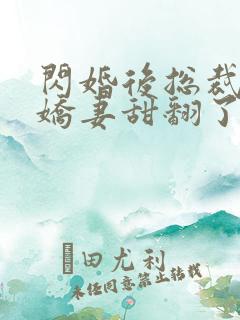 閃婚後總裁
嬌妻甜翻了
田尤利
未經同意禁止轉載